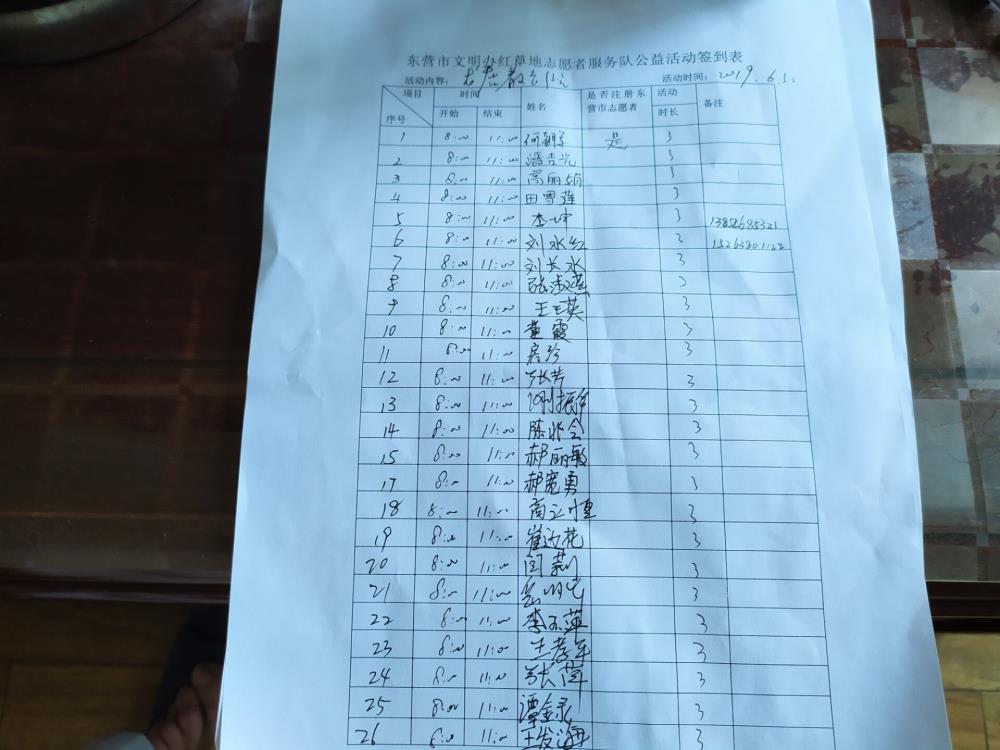 东营市文明办红草地志愿者服务队公益活动签到表
活动内容： 活动时间：2019.6.5.
项目 时间 姓名 是否注册东营市志愿者 活动时长 备注
序号 开始 结束
1 8:00 11:00 何朝军 是 3
2 8:00 11:00 潘吉光 3
3 8:00 11:00 高丽娟 3
4 8:00 11:00 田雪莲 3
5 8:00 11:00 李坤 3
6 8:00 11:00 刘水红 3
7 8:00 11:00 刘长水 3
8 8:00 11:00 张淑燕 3
9 8:00 11:00 王玉英 3
10 8:00 11:00 董霞 3
11 8:00 11:00 房珍 3
12 8:00 11:00 张芳 3
13 8:00 11:00 3
14 8:00 11:00 陈兆会 3
15 8:00 11:00 郝丽敏 3
17 8:00 11:00 郝宽勇 3
18 8:00 11:00 商立恒 3
19 8:00 11:00 3
20 8:00 11:00 闫莉 3
21 8:00 11:00 3
22 8:00 11:00 李玉萍 3
23 8:00 11:00 王孝军 3
24 8:00 11:00 张萍 3
25 8:00 11:00 谭金录 3
26 8:00 11:00 王发海 3